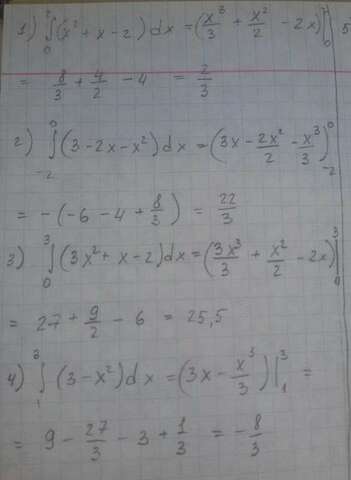 1) ∫₀² (x² + x - 2) dx = (x³/3 + x²/2 - 2x)|₀²
= 8/3 + 4/2 - 4 = 2/3
2) ∫₋₂⁰ (3 - 2x - x²) dx = (3x - 2x²/2 - x³/3)|₋₂⁰
= -(-6 - 4 + 8/3) = 22/3
3) ∫₀³ (3x² + x - 2) dx = (3x³/3 + x²/2 - 2x)|₀³
= 27 + 9/2 - 6 = 25,5
4) ∫₁³ (3 - x²) dx = (3x - x³/3)|₁³ =
= 9 - 27/3 - 3 + 1/3 = -8/3